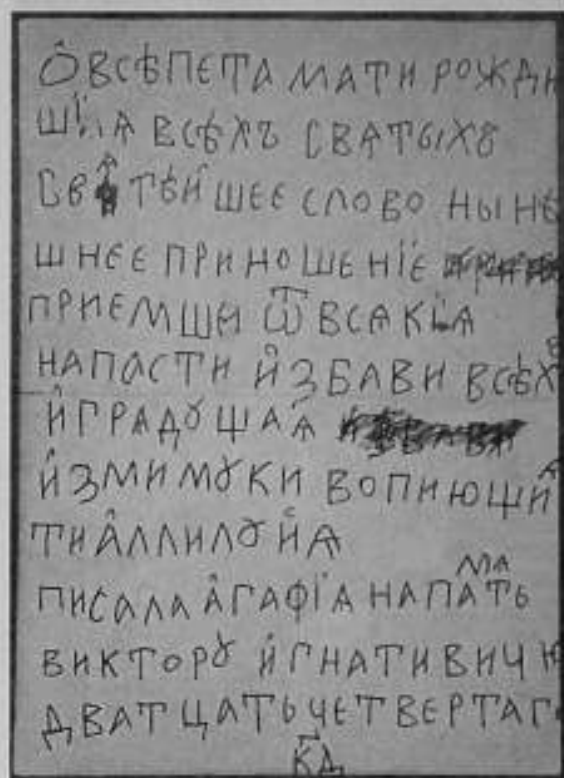 Ѻ҆ВСѢПЕТА МАТИ РОЖДИ
ШЇѦ ВСѢХЪ СВѦТЫХЪ
СВѦТѢЙШЕЕ СЛОВО НЫНѢ
ШНЕЕ ПРИНОШЕНЇЕ
ПРИЕМШИ Ѿ ВСѦКЇѦ
НАПАСТИ И҆ЗБАВИ ВСѢХЪ
И҆ГРАДꙊЩАѦ
И҆ЗМИ МꙊКИ ВОПИЮЩИѦ
ТИ А҆ЛЛИЛꙊЙѦ
ПИСАЛА А҆ГАФЇѦ НАПАМѦТЬ
ВИКТОРꙊ И҆ГНАТИВИЧЮ
ДВАТЦАТЬ ЧЕТВЕРТАГ
К҃Д